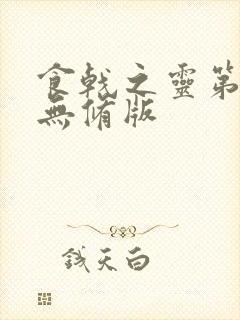 食戟之靈第
無脩版
錢天白